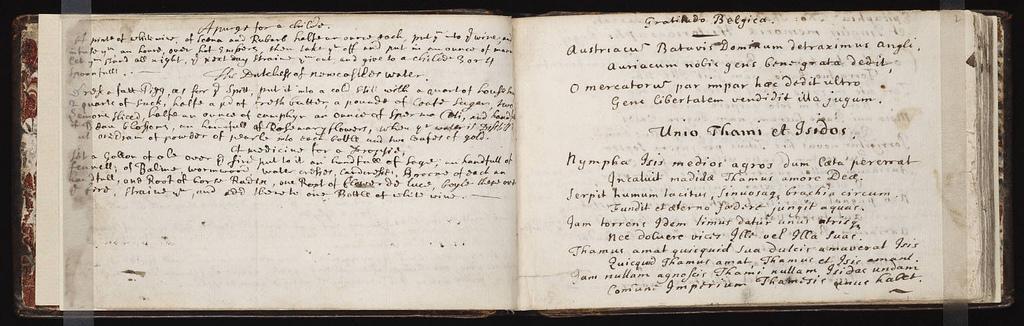 A purge for a childe
A pinte of white wine, of Seena and Rubarb halfe an ounce each, put yͤ into yͤ wine, and
an houre, over hot Embers, then take yᵗ off and put in an ounce of
stand all night, yͤ next day straine yᵗ out, and give to a childe 3 or 4
spoonfull.
The Dutchess of newcastles water.
a fatt Pigg, as for yͤ Spitt, put it into a cold Still with a quart of
a quart of Suck, halfe a pd of fresh butter, a pound of Loafe Sugar,
sliced, halfe an ounce of camphyr an ounce of Sperma Ceti, and
Bean blossoms, an hanfull of Rosemary flowers, when yͤ water is Distill'd
one dram of powder of pearle into each bottle and two leafes of gold.
A medicine for a
a Gallon of ale over yͤ fire put to it an handfull of Sage, an handfull of
Fennell, of Balme, wormwood, water cresses, Carduus, of each an
handfull, one Root of Horse Radish, one Root of flower de luce, boyle these over
fire, straine yᵗ, and add thereto one Bottle of white wine.
Gratitudo Belgica.
2
Austriacum Batavis Dominum detraximus Angli,
Auriacum nobis gens bene grata dedit,
O mercatorum par impar hæc dedit ultro
Gens libertatem vendidit illa jugum.
Unio Thami et Isidos
Nympha Isis medios agros dum læta pererrat
Incaluit madidæ Thamus amore Deæ,
Serpit humum tacitus, sinuosaq, brachia circum
Fundit et æterno fœdere jungit aquas.
Jam torrens Idem limus datur unus utrisq,
Nec doluere vices Ille vel Illa suas.
Thamus amat quicquid sua dulcis amaverat Isis
Quicquid Thamus amat, Thamus et Isis amant.
Jam nullam agnoscis Thami nullam Isidos undam
Comune Imperium Thamesis unus habet.